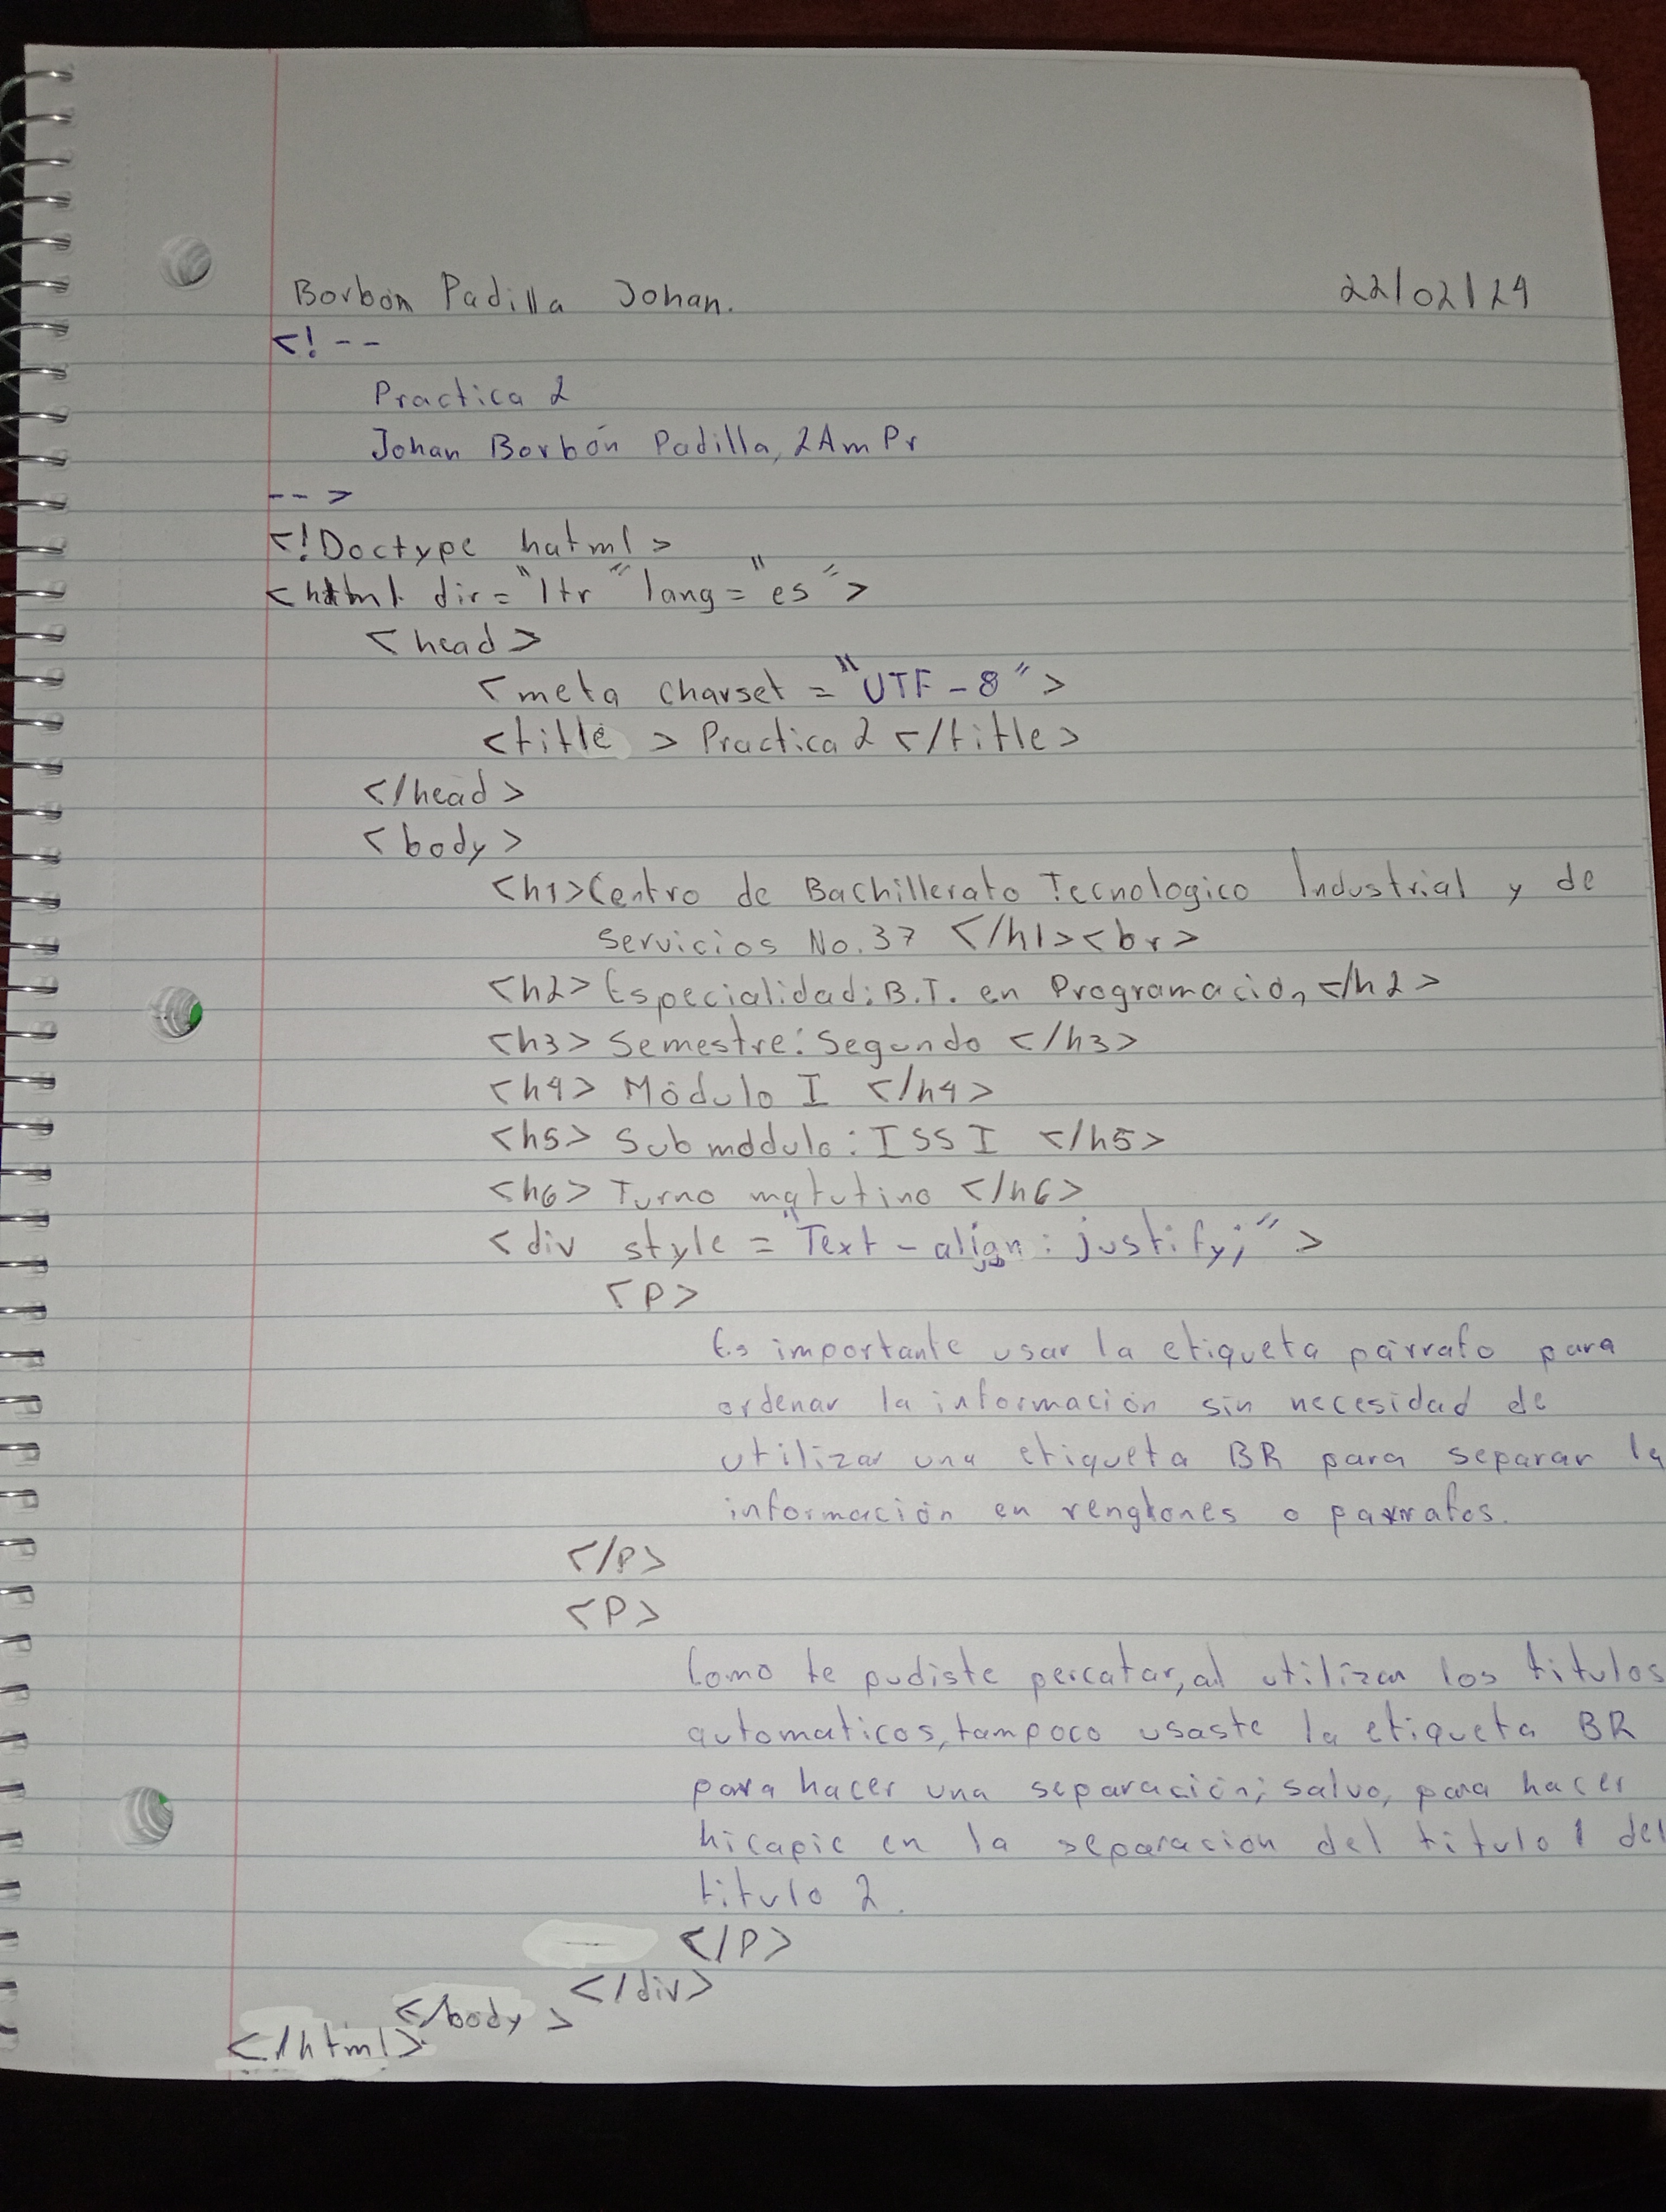 Borbón Padilla Johan. 22/02/24
<!--
Practica 2
Johan Borbón Padilla, 2AmPr
-->
<!Doctype hatml>
<html dir="ltr" lang="es">
<head>
<meta charset="UTF-8">
<title> Practica 2 </title>
</head>
<body>
<h1>Centro de Bachillerato Tecnologico Industrial y de
Servicios No.37 </h1><br>
<h2> Especialidad: B.T. en Programación </h2>
<h3> Semestre: Segundo </h3>
<h4> Módulo I </h4>
<h5> Submódulo: ISSI </h5>
<h6> Turno matutino </h6>
<div style="Text-align: justify;">
<P>
Es importante usar la etiqueta párrafo para
ordenar la información sin necesidad de
utilizar una etiqueta BR para separar la
información en renglones o parrafos.
</P>
<P>
Como te pudiste percatar, al utilizar los titulos
automaticos, tampoco usaste la etiqueta BR
para hacer una separación; salvo, para hacer
hicapie en la separacion del titulo 1 del
titulo 2.
</P>
</div>
</body>
</html>